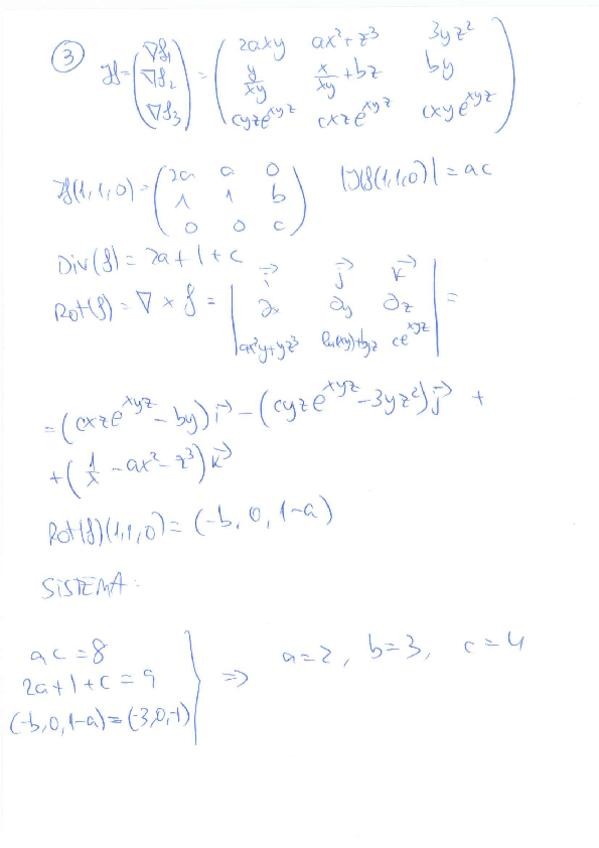 ③ Jf = (∇f₁ ∇f₂ ∇f₃) = ( 2axy ax²+z³ 3yz²
y/xy x/xy + bz by
cyze^xyz cxze^xyz cxye^xyz )
Jf(1,1,0) = ( 2a a 0 |Jf(1,1,0)| = ac
1 1 b
0 0 c )
Div(f) = 2a + 1 + c
Rot(f) = ∇ × f = | i⃗ j⃗ k⃗
∂x ∂y ∂z
ax²y+yz³ ln(xy)+byz ce^xyz | =
= (cxze^xyz − by) i⃗ − (cyze^xyz − 3yz²) j⃗ +
+ (1/x − ax² − z³) k⃗
Rot(f)(1,1,0) = (−b, 0, 1−a)
SISTEMA:
ac = 8
2a+1+c = 9 } ⇒ a=2, b=3, c=4
(−b,0,1−a) = (−3,0,−1)